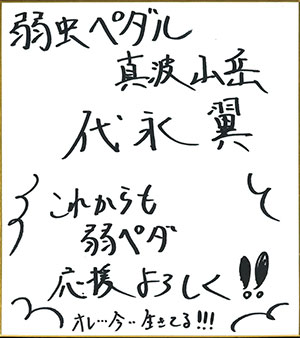 弱虫ペダル
真波山岳
代永翼
これからも
弱ペダ
応援よろしく!!
オレ…今…生きてる!!!